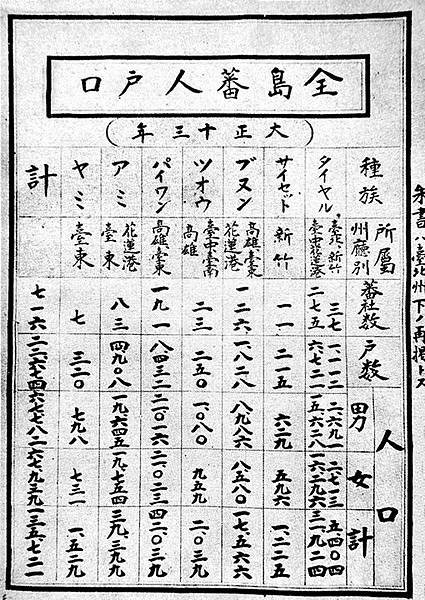 全島蕃人戸口
(大正十三年)
種族 所属州廳別 蕃社数 戸数 人口 男 女 計
タイヤル 臺北、新竹 臺中花蓮港 三七 二七五 一、一一二 六七二一 二、六九一 一五六二八 二、七一三 一六、二九六 五四〇四 三一、九二四
サイセット 新竹 一一 二一五 六二九 五九六 一、二二五
ブヌン 高雄、臺東 花蓮港 一二六 一、八二八 八、九八六 八、五八〇 一七、五六六
ツオウ 臺中臺南 高雄 二三 二五〇 一、〇八〇 九五九 二、〇三九
パイワン 高雄、臺東 一九一 八四三二 二一〇一六 二一、〇二三 四二〇三九
アミ 花蓮港 臺東 八三 四九〇八 一九、六四五 一九、七五四 三九、三九九
ヤミ 臺東 七 三二〇 七九八 七三一 一、五二九
計 七一六 二二六七四 六七七八二 六七、九三九 一三五、七二一
朱書ハ臺北州下ノ再掲トス